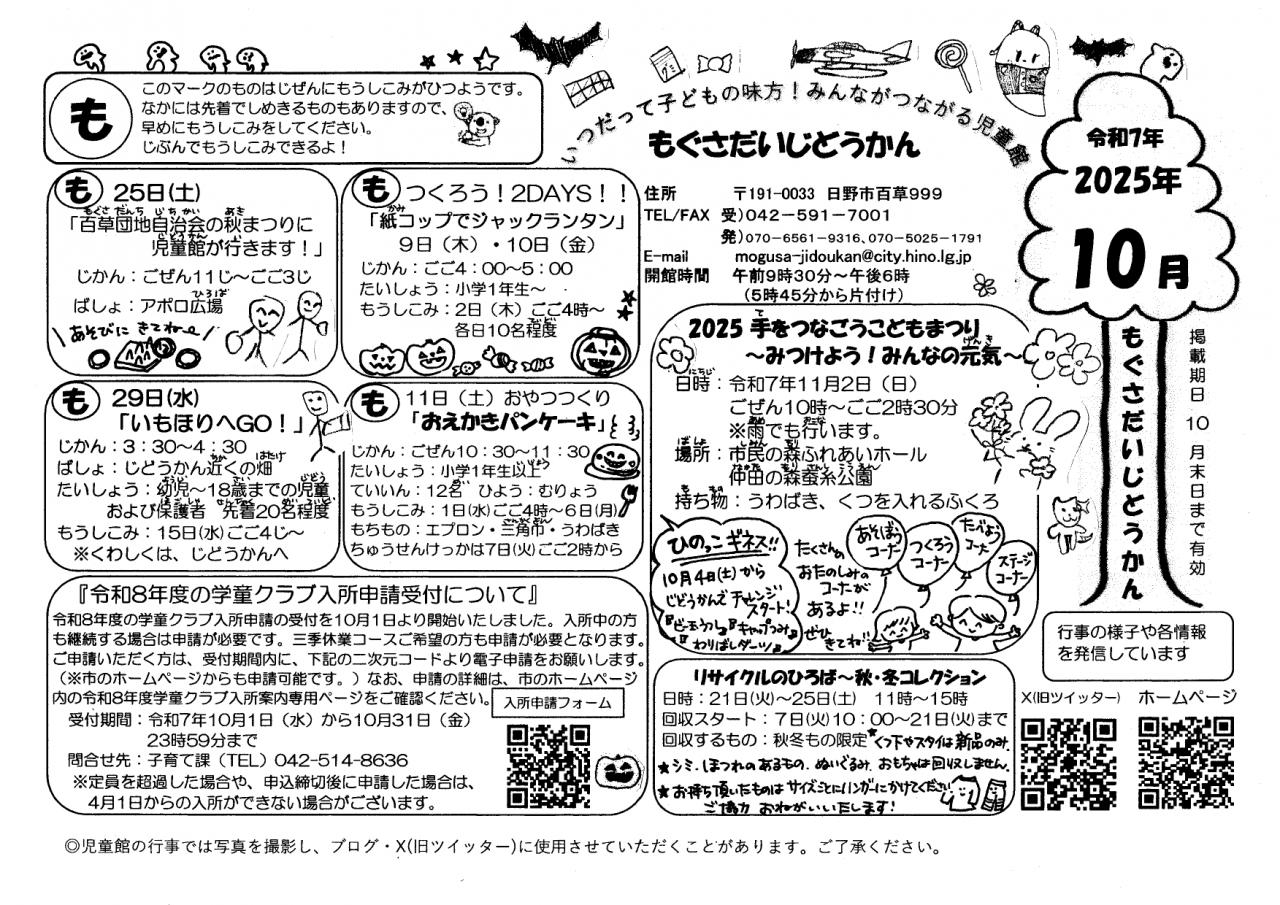 も
このマークのものはじぜんにもうしこみがひつようです。
なかには先着でしめきるものもありますので、
早めにもうしこみをしてください。
じぶんでもうしこみできるよ！
グミ
いつだって子どもの味方！みんながつながる児童館
もぐさだいじどうかん
令和7年
2025年
10月
もぐさだいじどうかん
掲載期日 10 月末日まで有効
住所 〒191-0033 日野市百草999
TEL/FAX 受)042－591－7001
発)070-6561-9316、070-5025-1791
E-mail mogusa-jidoukan@city.hino.lg.jp
開館時間 午前9時30分～午後6時
(5時45分から片付け)
も 25日(土)
「百草団地自治会の秋まつりに
児童館が行きます！」
じかん：ごぜん11じ～ごご3じ
ばしょ：アポロ広場
あそびに きてね〜
も つくろう！2DAYS！！
「紙コップでジャックランタン」
9日（木）・10日（金）
じかん：ごご4：00～5：00
たいしょう：小学1年生～
もうしこみ：2日（木）ごご4時～
各日10名程度
も 29日(水)
「いもほりへGO！」
じかん：3：30～4：30
ばしょ：じどうかん近くの畑
たいしょう：幼児～18歳までの児童
および保護者 先着20名程度
もうしこみ：15日(水)ごご4じ～
※くわしくは、じどうかんへ
も 11日（土）おやつつくり
「おえかきパンケーキ」
じかん：ごぜん10：30～11：30
たいしょう：小学1年生以上
ていいん：12名 ひよう：むりょう
もうしこみ：1日(水)ごご4時～6日(月)
もちもの：エプロン・三角巾・うわばき
ちゅうせんけっかは7日(火)ごご2時から
2025 手をつなごうこどもまつり
～みつけよう！みんなの元気～
日時：令和7年11月2日（日）
ごぜん10時～ごご2時30分
※雨でも行います。
場所：市民の森ふれあいホール
仲田の森蚕糸公園
持ち物：うわばき、くつを入れるふくろ
ひのっこ ギネス!!
10月4日(土)から
じどうかんで チャレンジ
スタート!
『ビー玉うつし』『キャップつみ』
『わりばしダーツ』
たくさんの
おたのしみの
コーナーが
あるよ!!
ぜひ
きてね!!
あそぼう
コーナー
つくろう
コーナー
たべよう
コーナー
ステージ
コーナー
『令和8年度の学童クラブ入所申請受付について』
令和8年度の学童クラブ入所申請の受付を10月1日より開始いたしました。入所中の方
も継続する場合は申請が必要です。三季休業コースご希望の方も申請が必要となります。
ご申請いただく方は、受付期間内に、下記の二次元コードより電子申請をお願いします。
（※市のホームページからも申請可能です。）なお、申請の詳細は、市のホームページ
内の令和8年度学童クラブ入所案内専用ページをご確認ください。
入所申請フォーム
受付期間：令和7年10月1日（水）から10月31日（金）
23時59分まで
問合せ先：子育て課（TEL）042-514-8636
※定員を超過した場合や、申込締切後に申請した場合は、
4月1日からの入所ができない場合がございます。
リサイクルのひろば～秋・冬コレクション
日時：21日(火)～25日(土) 11時～15時
回収スタート：7日(火)10：00～21日(火)まで
回収するもの：秋冬もの限定 ★くつ下やスタイは新品のみ.
★シミ、ほつれのあるもの、ぬいぐるみ、おもちゃは回収しません.
★お持ち頂いたものはサイズごとにハンガーにかけてください
ご協力 おねがいいたします!
行事の様子や各情報
を発信しています
X(旧ツイッター) ホームページ
◎児童館の行事では写真を撮影し、ブログ・X(旧ツイッター)に使用させていただくことがあります。ご了承ください。